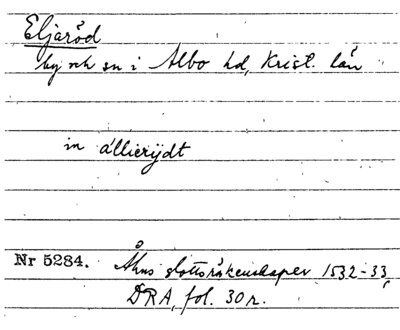 Eljaröd
by och sn i Albo hd, Krist. län
in ällierijdt
Nr 5284. Åhus slottsräkenskaper 1532-33,
DRA, fol. 30 r.